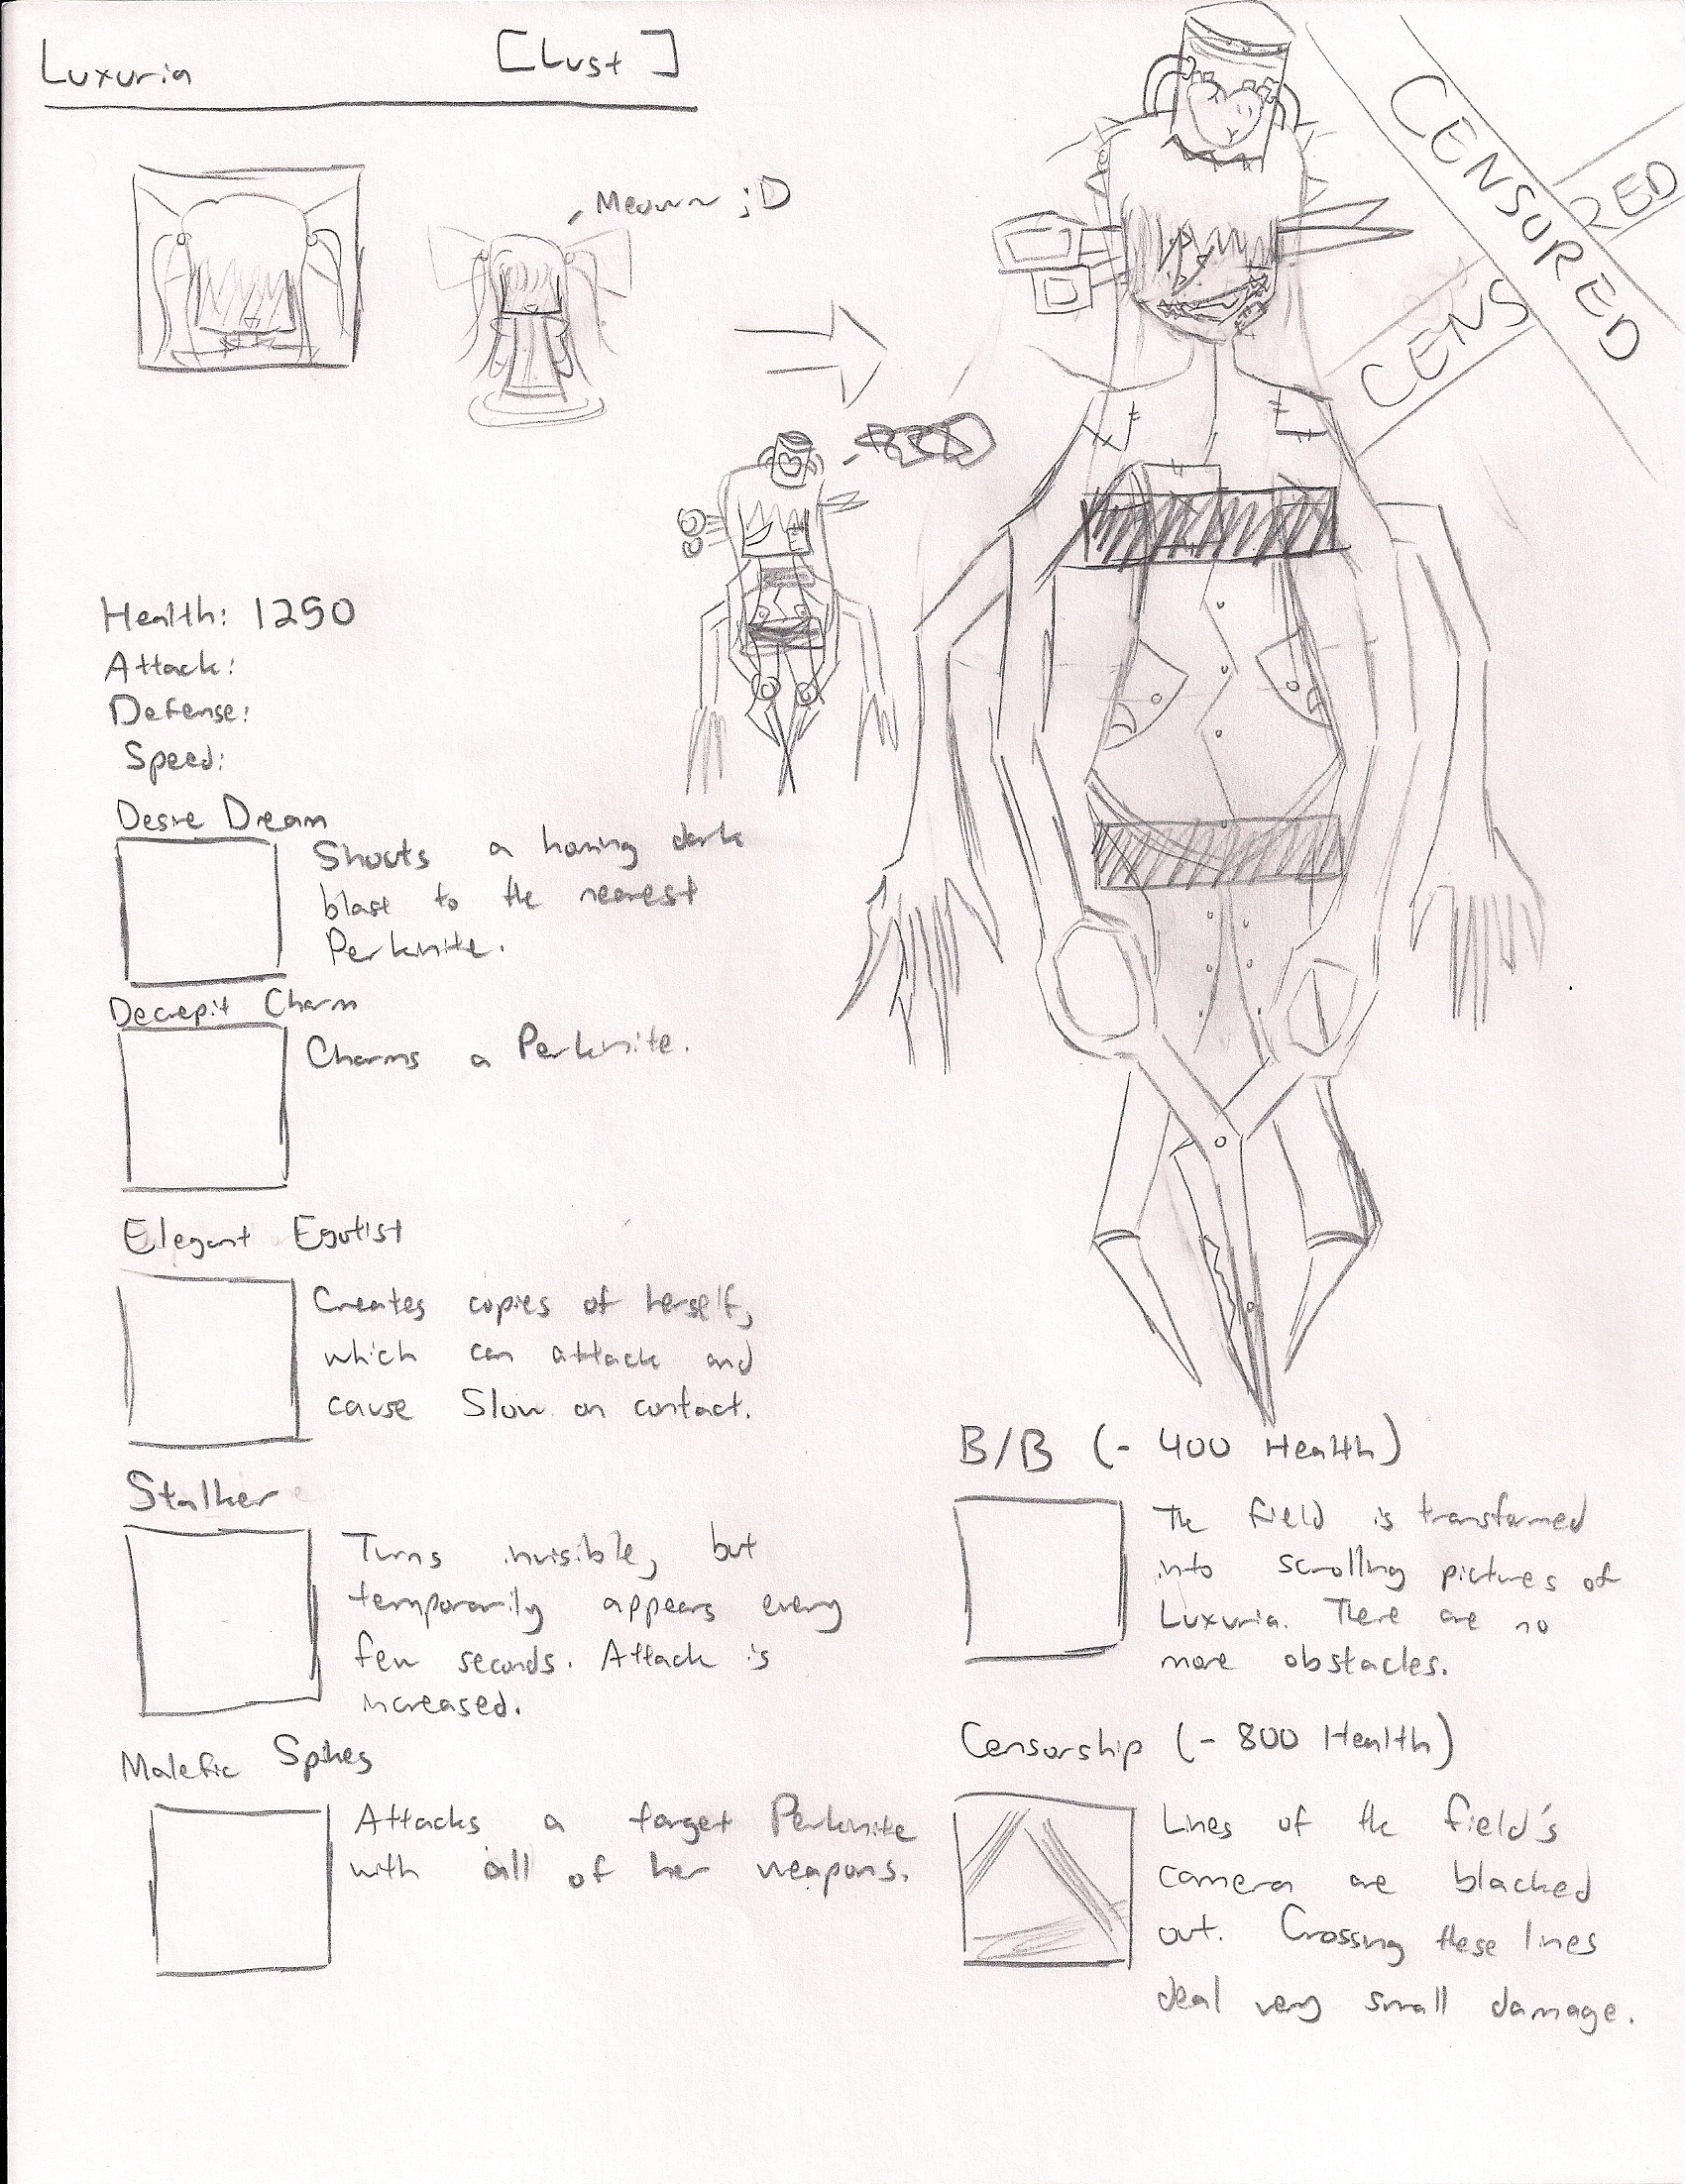 Luxuria [Lust]
Meowr~ ;D
CENSURED
RED
CENS
Health: 1250
Attack:
Defense:
Speed:
Desire Dream
Shoots a homing dark
blast to the nearest
Perknite.
Decrepit Charm
Charms a Perknite.
Elegant Egotist
Creates copies of herself,
which can attack and
cause Slow on contact.
Stalker
Turns invisible, but
temporarily appears every
few seconds. Attack is
increased.
Malefic Spikes
Attacks a target Perknite
with all of her weapons.
B/B (- 400 Health)
The field is transformed
into scrolling pictures of
Luxuria. There are no
more obstacles.
Censorship (- 800 Health)
Lines of the field's
camera are blacked
out. Crossing these lines
deal very small damage.